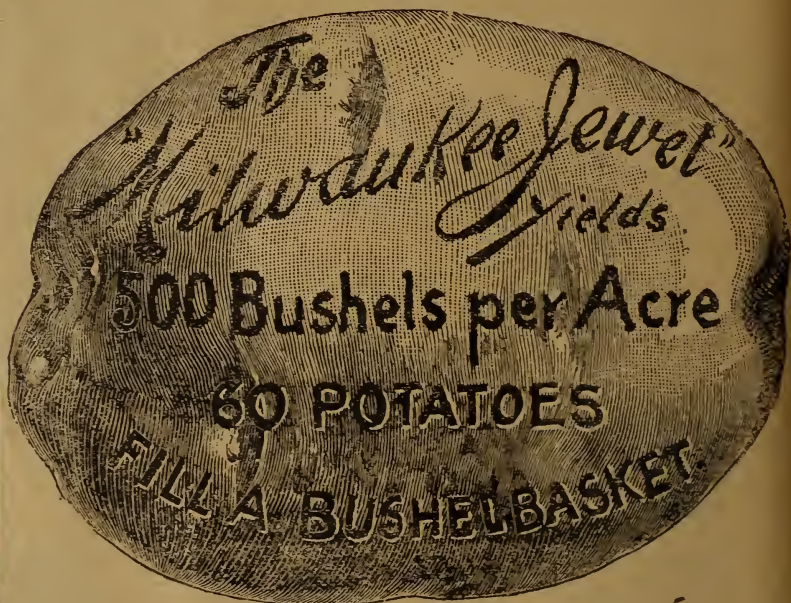 The
"Milwaukee Jewel"
Yields
500 Bushels per Acre
60 POTATOES
FILL A BUSHELBASKET.